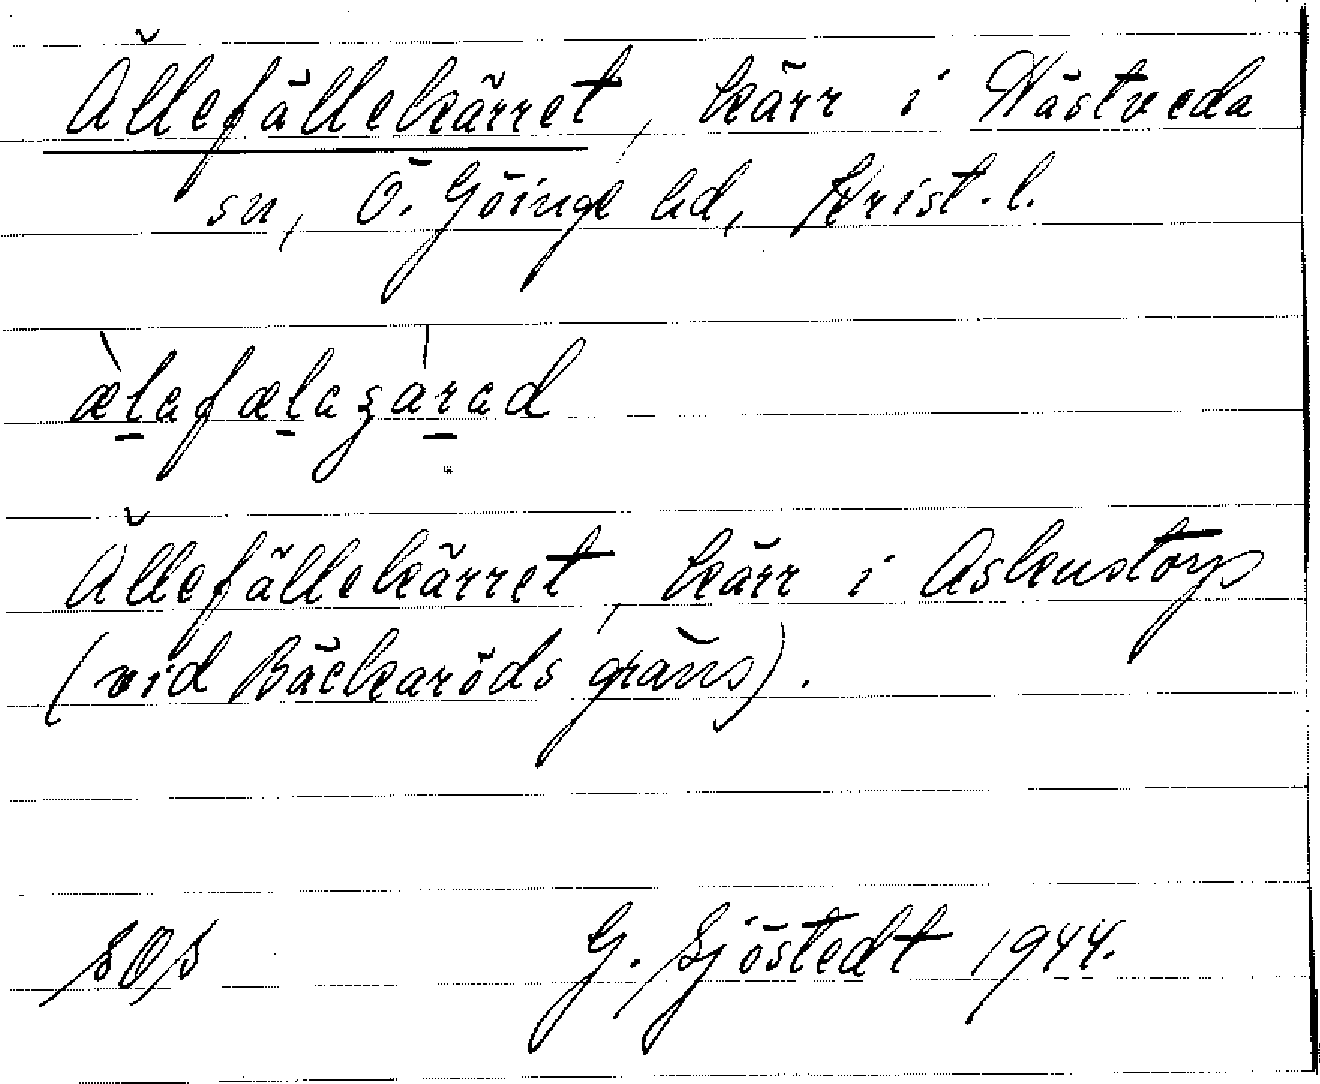 Ällefällekärret, kärr i Nästveda
sn, Ö. Göinge hd, Krist. l.
ælafælaʒarad
Ällefällekärret, kärr i Askustorp
(vid Bäckaröds gräns).
SOS G. Sjöstedt 1944.